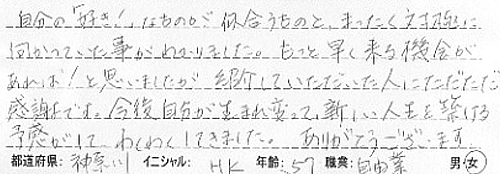 自分の「好き!」なものが似合うものと、まったく対極に
向かっていた事がわかりました。もっと早く来る機会が
あれば!と思いましたが紹介していただいた人にただただ
感謝です。今後自分が生まれ変って、新しい人生を築ける
予感がして、わくわくしてきました。ありがとうございます
都道府県: 神奈川 イニシャル: HK 年齢: 57 職業: 自由業 男・女